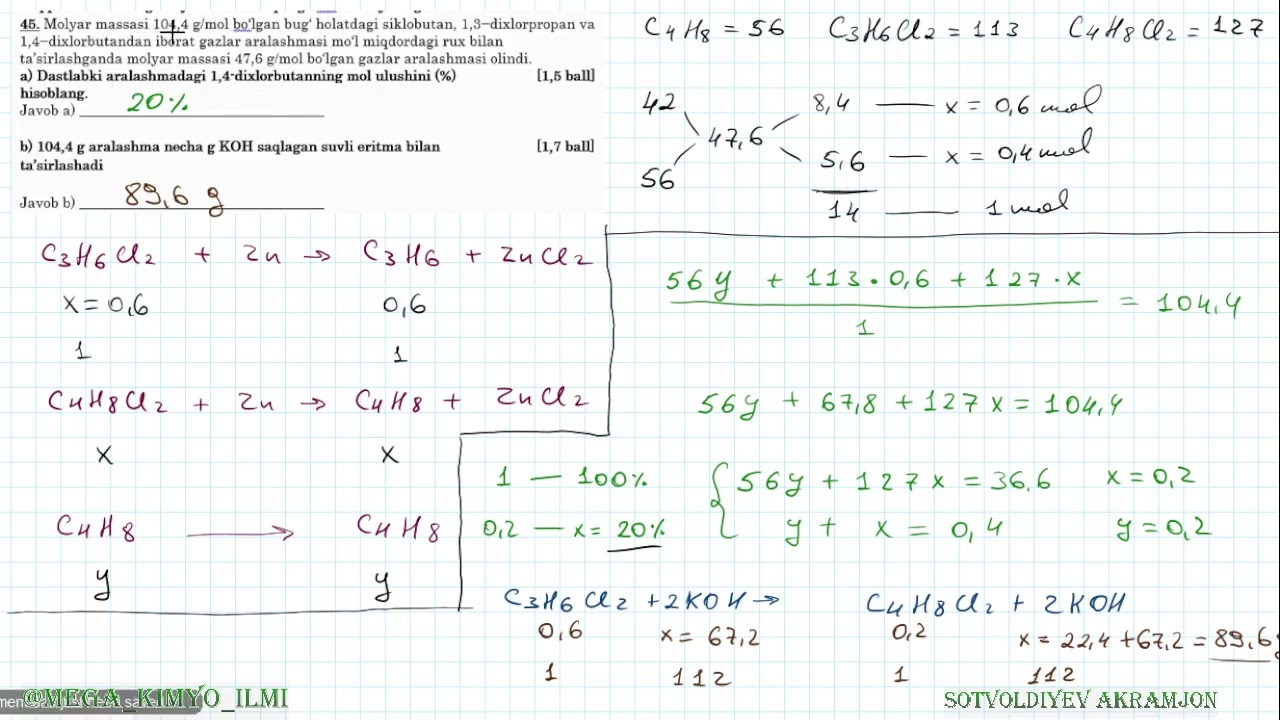 45. Molyar massasi 104,4 g/mol bo'lgan bug' holatdagi siklobutan, 1,3–dixlorpropan va
1,4–dixlorbutandan iborat gazlar aralashmasi mo'l miqdordagi rux bilan
ta'sirlashganda molyar massasi 47,6 g/mol bo'lgan gazlar aralashmasi olindi.
a) Dastlabki aralashmadagi 1,4-dixlorbutanning mol ulushini (%) [1,5 ball]
hisoblang.
Javob a) 20%
b) 104,4 g aralashma necha g KOH saqlagan suvli eritma bilan [1,7 ball]
ta'sirlashadi
Javob b) 89,6 g
C4H8 = 56 C3H6Cl2 = 113 C4H8Cl2 = 127
42 8,4 — x = 0,6 mol
47,6
56 5,6 — x = 0,4 mol
14 — 1 mol
C3H6Cl2 + Zn → C3H6 + ZnCl2
x = 0,6 0,6
1 1
C4H8Cl2 + Zn → C4H8 + ZnCl2
x x
C4H8 → C4H8
y y
56y + 113·0,6 + 127·x = 104,4
1
56y + 67,8 + 127x = 104,4
1 — 100% 56y + 127x = 36,6 x = 0,2
0,2 — x = 20% y + x = 0,4 y = 0,2
C3H6Cl2 + 2KOH → C4H8Cl2 + 2KOH
0,6 x = 67,2 0,2 x = 22,4 + 67,2 = 89,6
1 112 1 112
@MEGA_KIMYO_ILMI
SOTVOLDIYEV AKRAMJON